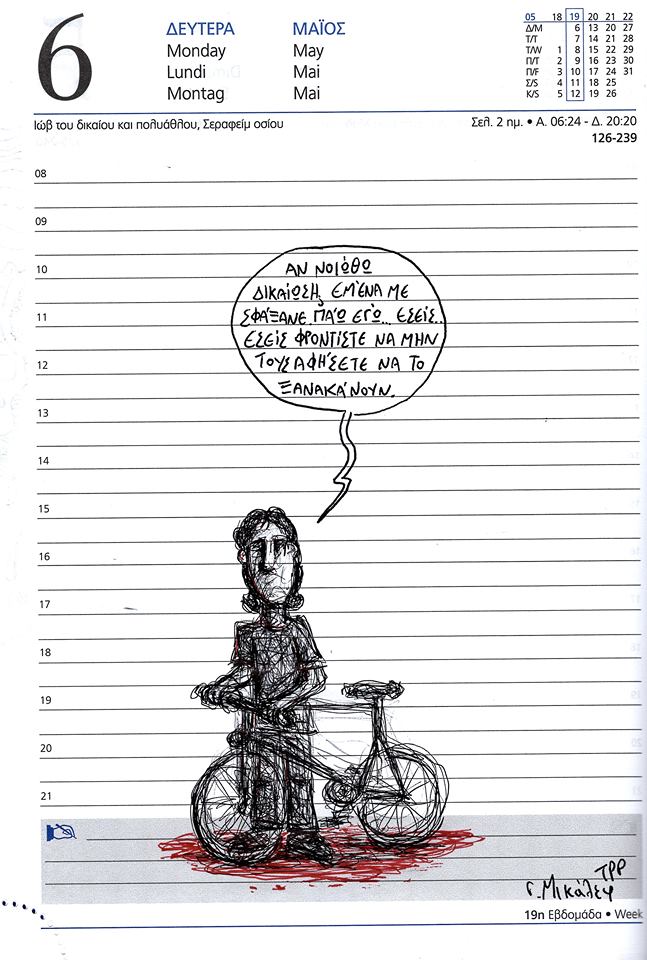 6
ΔΕΥΤΕΡΑ ΜΑΪΟΣ
Monday May
Lundi Mai
Montag Mai
05 18 19 20 21 22
Δ/M 6 13 20 27
T/T 7 14 21 28
T/W 1 8 15 22 29
Π/T 2 9 16 23 30
Π/F 3 10 17 24 31
Σ/S 4 11 18 25
K/S 5 12 19 26
Ιώβ του δικαίου και πολυάθλου, Σεραφείμ οσίου
Σελ. 2 ημ. • Α. 06:24 - Δ. 20:20
126-239
08
09
10
11
12
13
14
15
16
17
18
19
20
21
ΑΝ ΝΟΙΏΘΩ
ΔΙΚΑΊΩΣΗ; ΕΜΈΝΑ ΜΕ
ΣΦΆΞΑΝΕ. ΠΆΩ ΕΓΏ... ΕΣΕΊΣ..
ΕΣΕΊΣ ΦΡΟΝΤΊΣΤΕ ΝΑ ΜΗΝ
ΤΟΥΣ ΑΦΉΣΕΤΕ ΝΑ ΤΟ
ΞΑΝΑΚΆΝΟΥΝ.
ΤΡΡ
Γ. Μικάλεφ
19η Εβδομάδα • Week